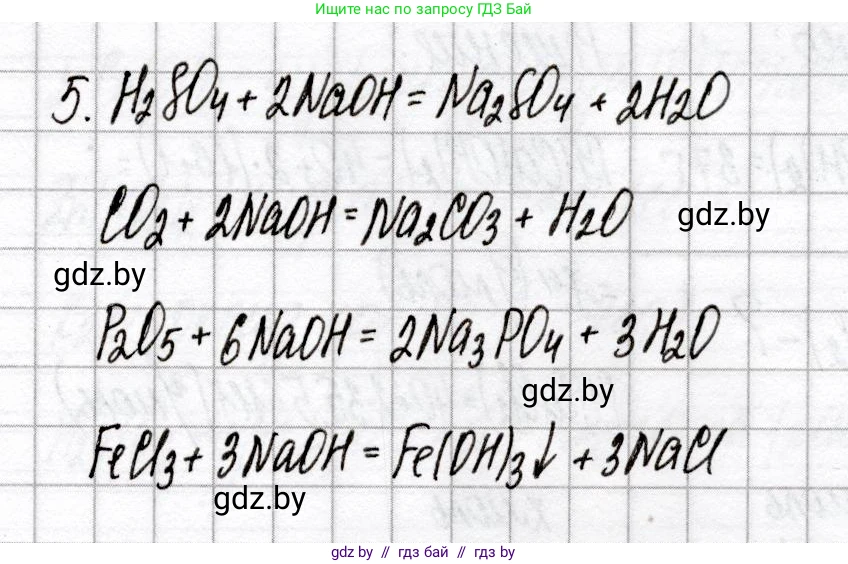 Ищите нас по запросу ГДЗ Бай
5. H₂SO₄ + 2NaOH = Na₂SO₄ + 2H₂O
CO₂ + 2NaOH = Na₂CO₃ + H₂O
gdz.by
gdz.by
P₂O₅ + 6NaOH = 2Na₃PO₄ + 3H₂O
gdz.by
FeCl₃ + 3NaOH = Fe(OH)₃↓ + 3NaCl
gdz.by
gdz by // гдз бай // гдз by